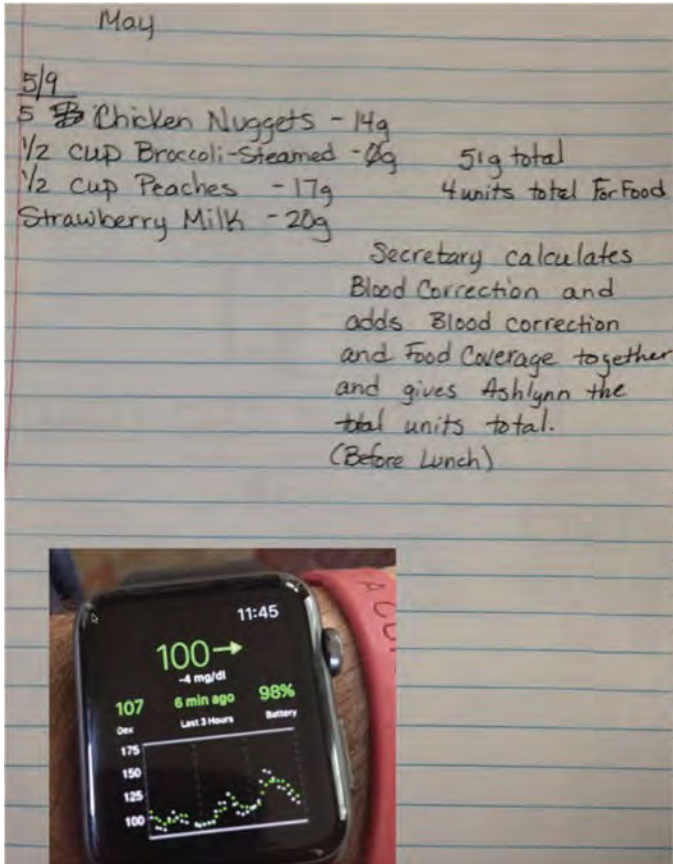 May
5/9
5 Chicken Nuggets - 14g
1/2 cup Broccoli-Steamed - 0g
1/2 cup Peaches - 17g
Strawberry Milk - 20g
51g total
4 units total For Food
Secretary calculates
Blood Correction and
adds Blood correction
and Food Coverage together
and gives Ashlynn the
total units total.
(Before Lunch)
11:45
100→
-4 mg/dl
107 6 min ago 98%
Dex Last 3 Hours Battery
175
150
125
100